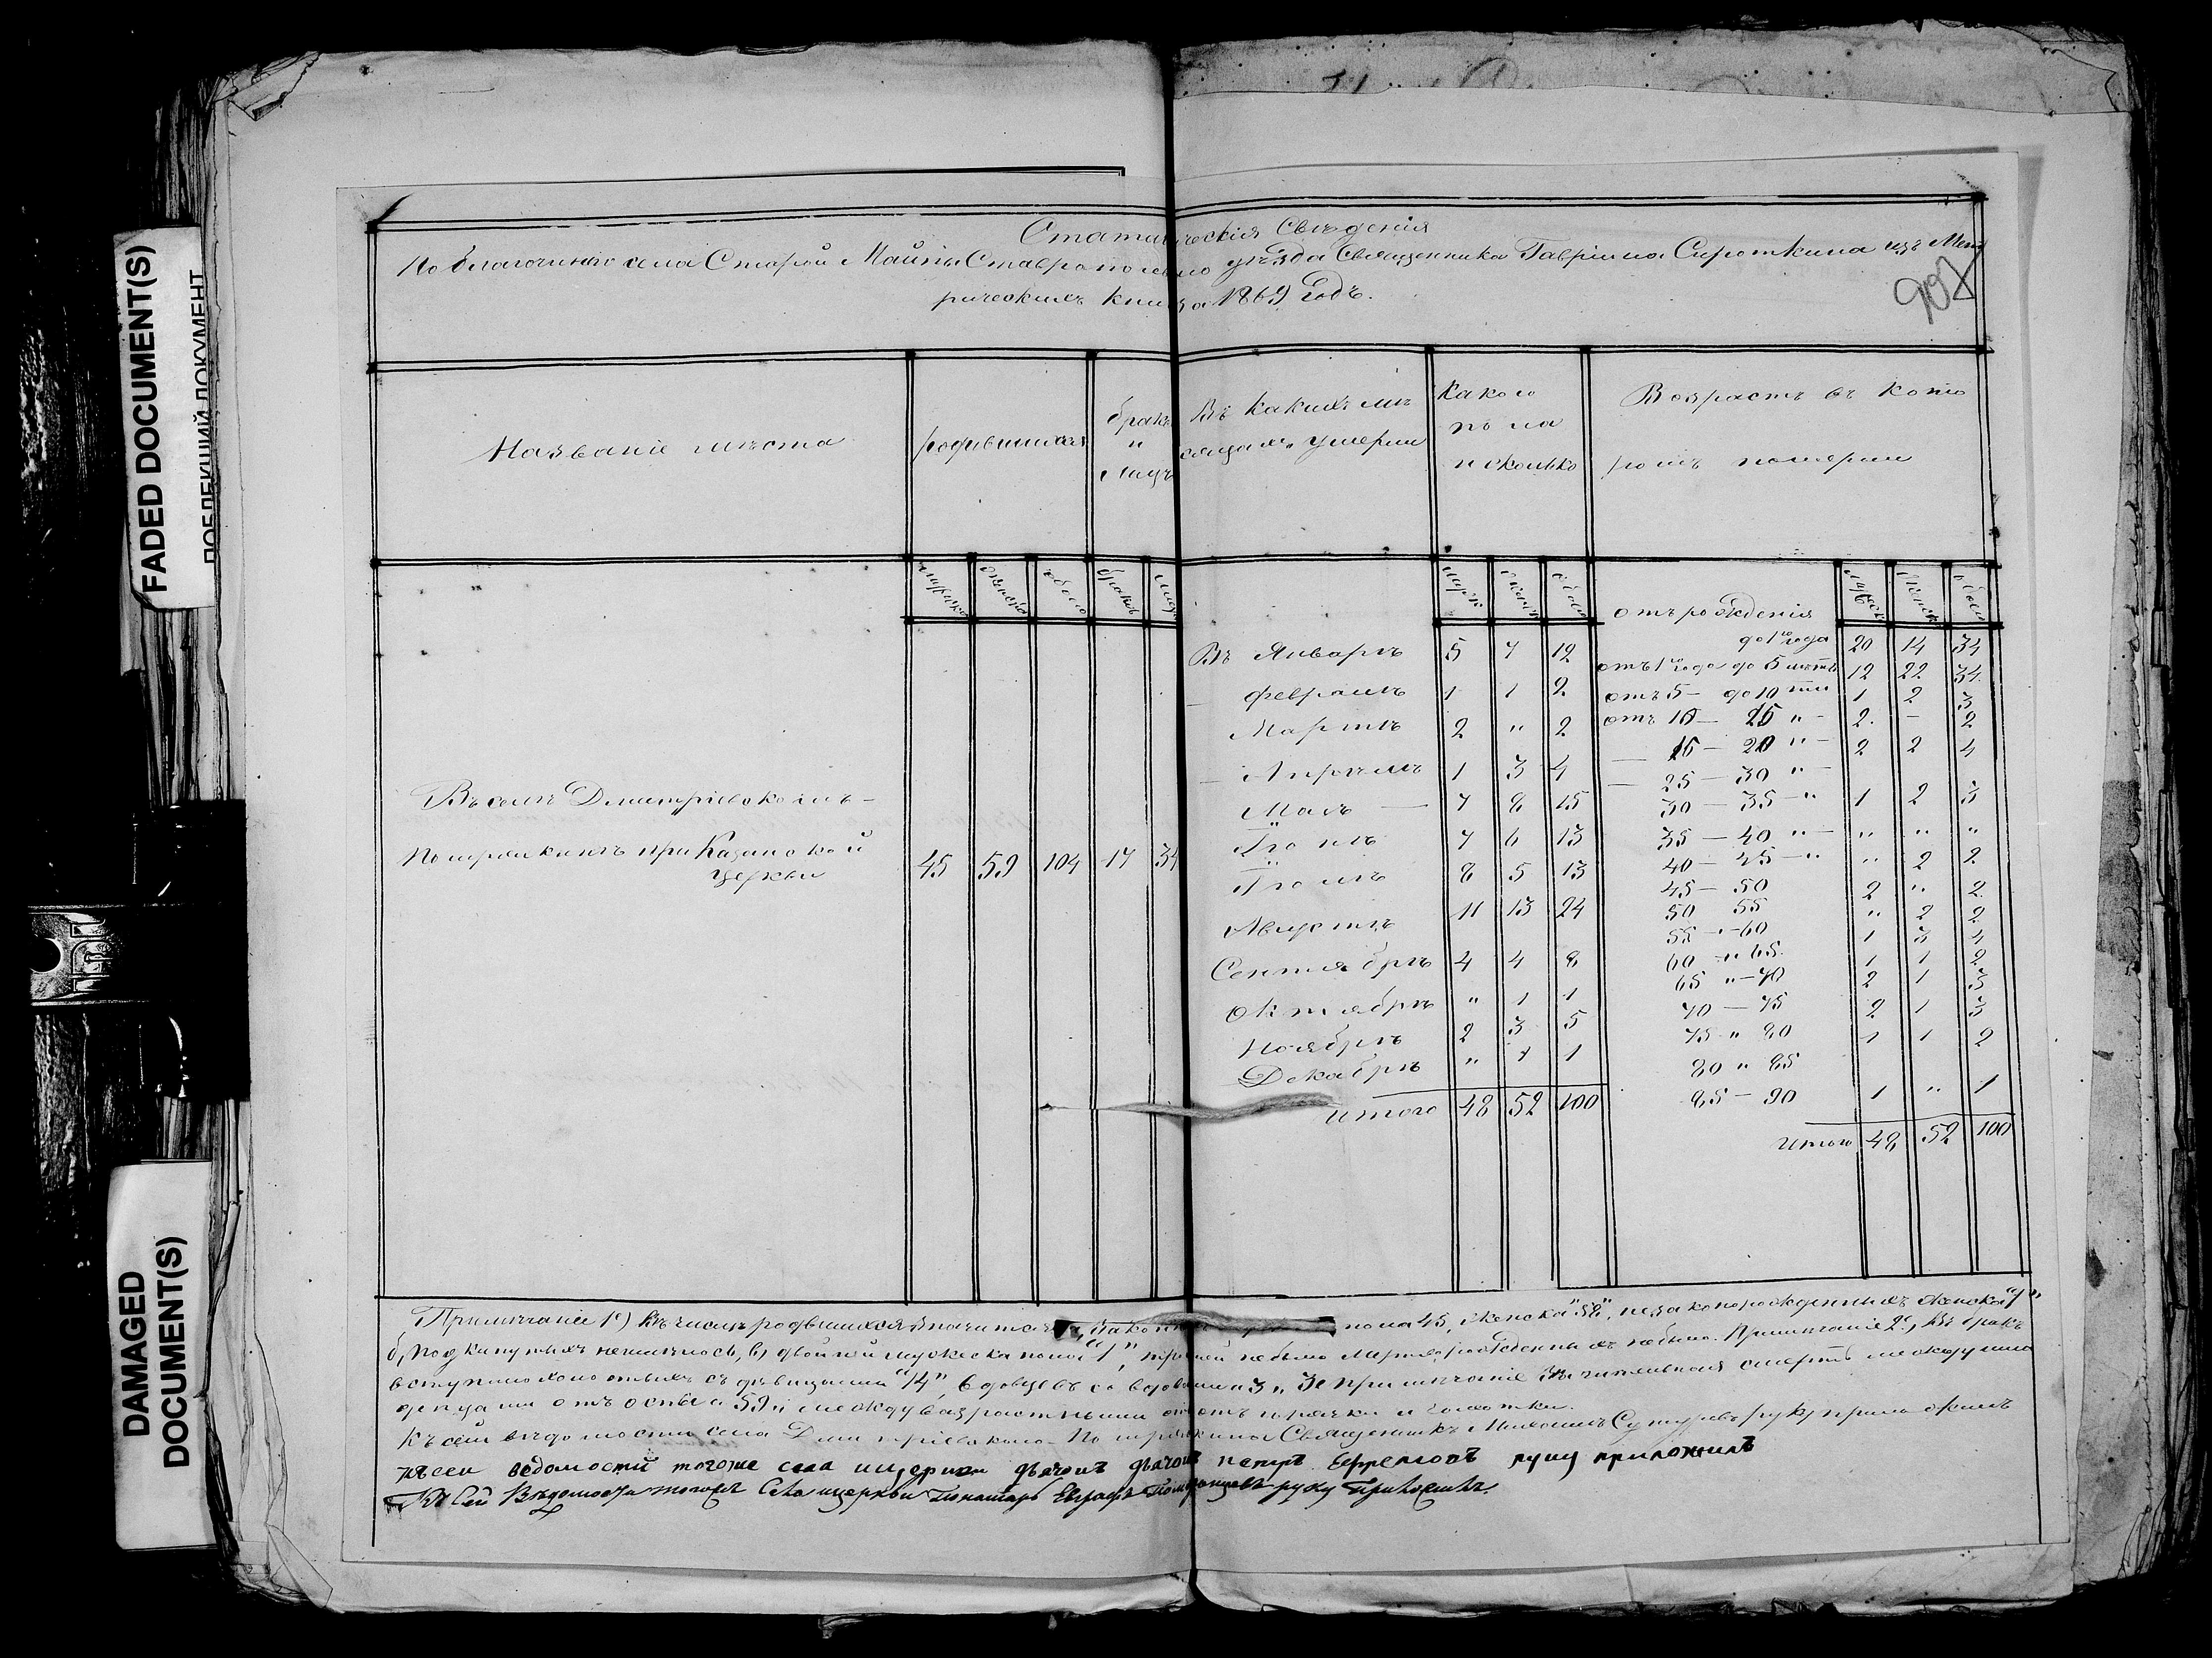 Статистическія Свѣденія
По благочинію села Старой Майны Ставропольскаго уѣзда Священника Гавріила Сироткина изъ Мет
рическихъ книгъ за 1869 годъ.
907
Названіе мѣста
родившихся
браки
и
лицъ
Въ какихъ мѣ
сяцахъ умерли
Какого
пола
и сколько
Возрастъ въ кото
ромъ померли
мужска
женска
обоего
браковъ
лицъ
муж
женск
обоего
отъ рожденія
мужеск
женск
обоего
до 1го года 20 14 34
Въ Январѣ 5 7 12
отъ 1го года до 5 лѣтъ 12 22 34
Февралѣ 1 1 2
отъ 5 — до 10 ти 1 2 3
Мартѣ 2 " 2
отъ 10 — 15 " — 2 — 2
Апрѣлѣ 1 3 4
— 15 — 20 " — 2 2 4
— 25 — 30 " —
Маѣ — 7 8 15
30 — 35 — " 1 2 3
Іюнѣ 7 6 13
35 — 40 " — " " "
Іюлѣ 8 5 13
40 — 45 — " " 2 2
45 — 50 2 " 2
Августѣ 11 13 24
50 55 " 2 2
55 — " — 60 1 3 4
Сентябрѣ 4 4 8
60 — " 65 1 1 2
65 " — 70 2 1 3
Октябрѣ " 1 1
70 — 75 2 1 3
Ноябрѣ 2 3 5
75 " 80 1 1 2
Декабрѣ " 1 1
80 " 85
85 — 90 1 " 1
итого 48 52 100
Итого 48 52 100
Въ селѣ Дмитріевскомъ —
Помряскинѣ при Казанской
церкви
45 59 104 17 34
Примѣчаніе 1е) Въ числѣ родившихся значится а, закон пола 45, женска "58", незаконорожденныхъ женска "1",
б, подкинутыхъ неимѣлось, в, двойни мужеска пола "1", тройни небыло мертворожденныхъ небыло. Примѣчаніе 2е, Въ бракъ
вступило холостыхъ съ дѣвицами "14", вдовцевъ со вдовами "3", 3е примѣчаніе Значительная смерть между мла
денцами отъ оспы 59 и между возрастными отъ горячки и чахотки.
Къ сей вѣдомости села Дмитріевскаго — Помряскина Священникъ Сутуровъ руку приложилъ
къ сеи ведомости тогоже села и церкви дьячокъ петръ Ефремовъ руку приложилъ
Къ Сей Вѣдомости тогожъ Села и церкви Пономарь Евграфъ руку Приложилъ.
FADED DOCUMENT(S)
ПОБЛЕКШИЙ ДОКУМЕНТ
DAMAGED
DOCUMENT(S)